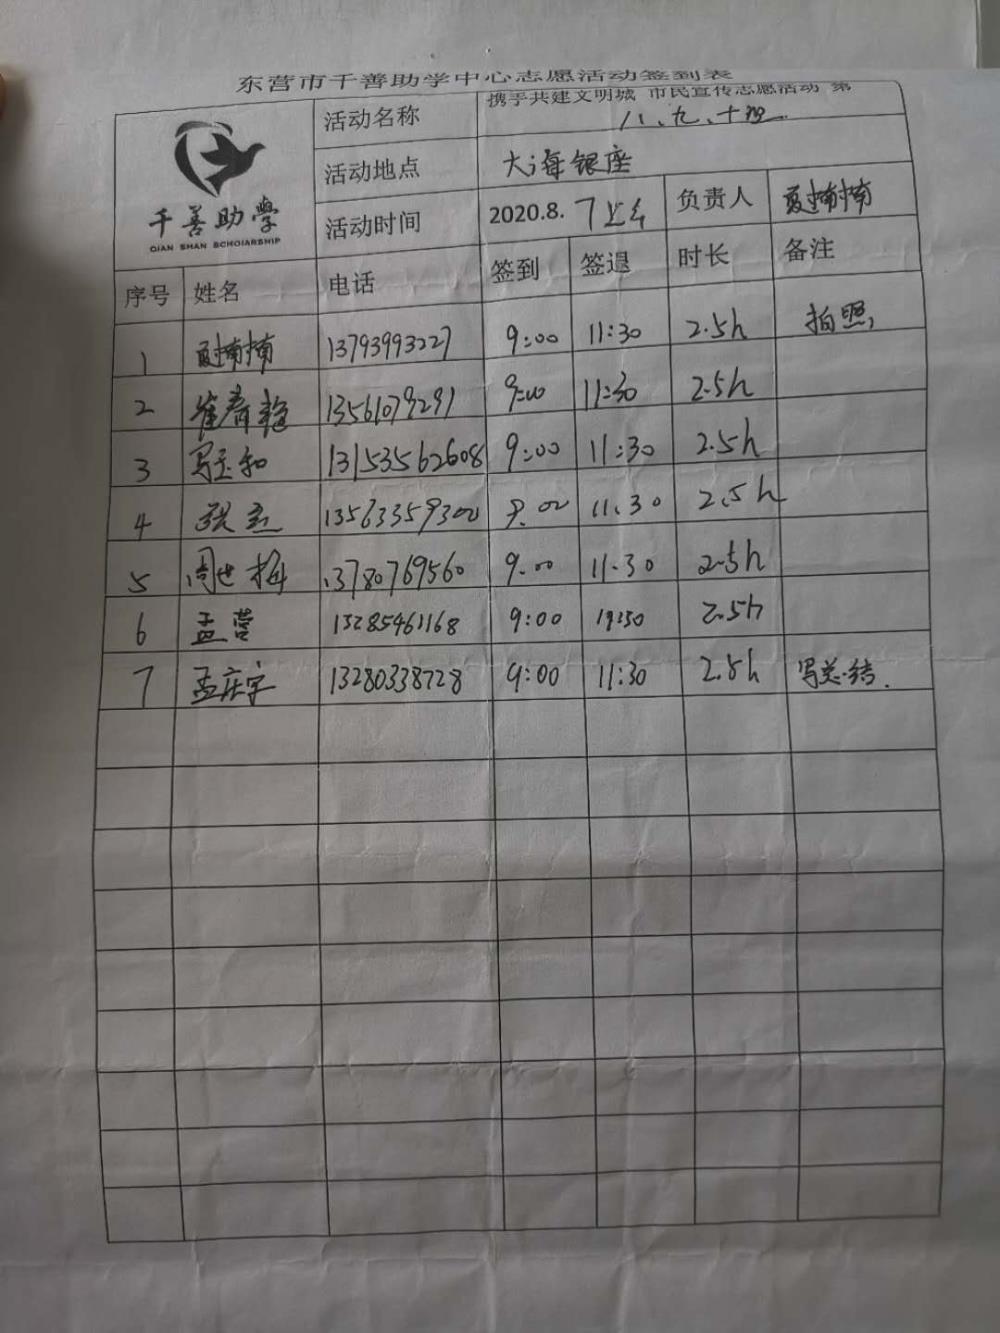 东营市千善助学中心志愿活动签到表
千善助学
QIAN SHAN SCHOlARSHIP
活动名称 携手共建文明城 市民宣传志愿活动 第
八、九、十期
活动地点 大海银座
活动时间 2020.8.7上午 负责人
序号 姓名 电话 签到 签退 时长 备注
1 13793993227 9:00 11:30 2.5h 拍照
2 崔春 13561079291 9:00 11:30 2.5h
3 13153562608 9:00 11:30 2.5h
4 13563359300 9.00 11.30 2.5h
5 周世梅 13780769560 9.00 11.30 2.5h
6 孟营 13285461168 9:00 2.5h
7 孟庆宇 13280338728 9:00 11:30 2.5h 写总结.